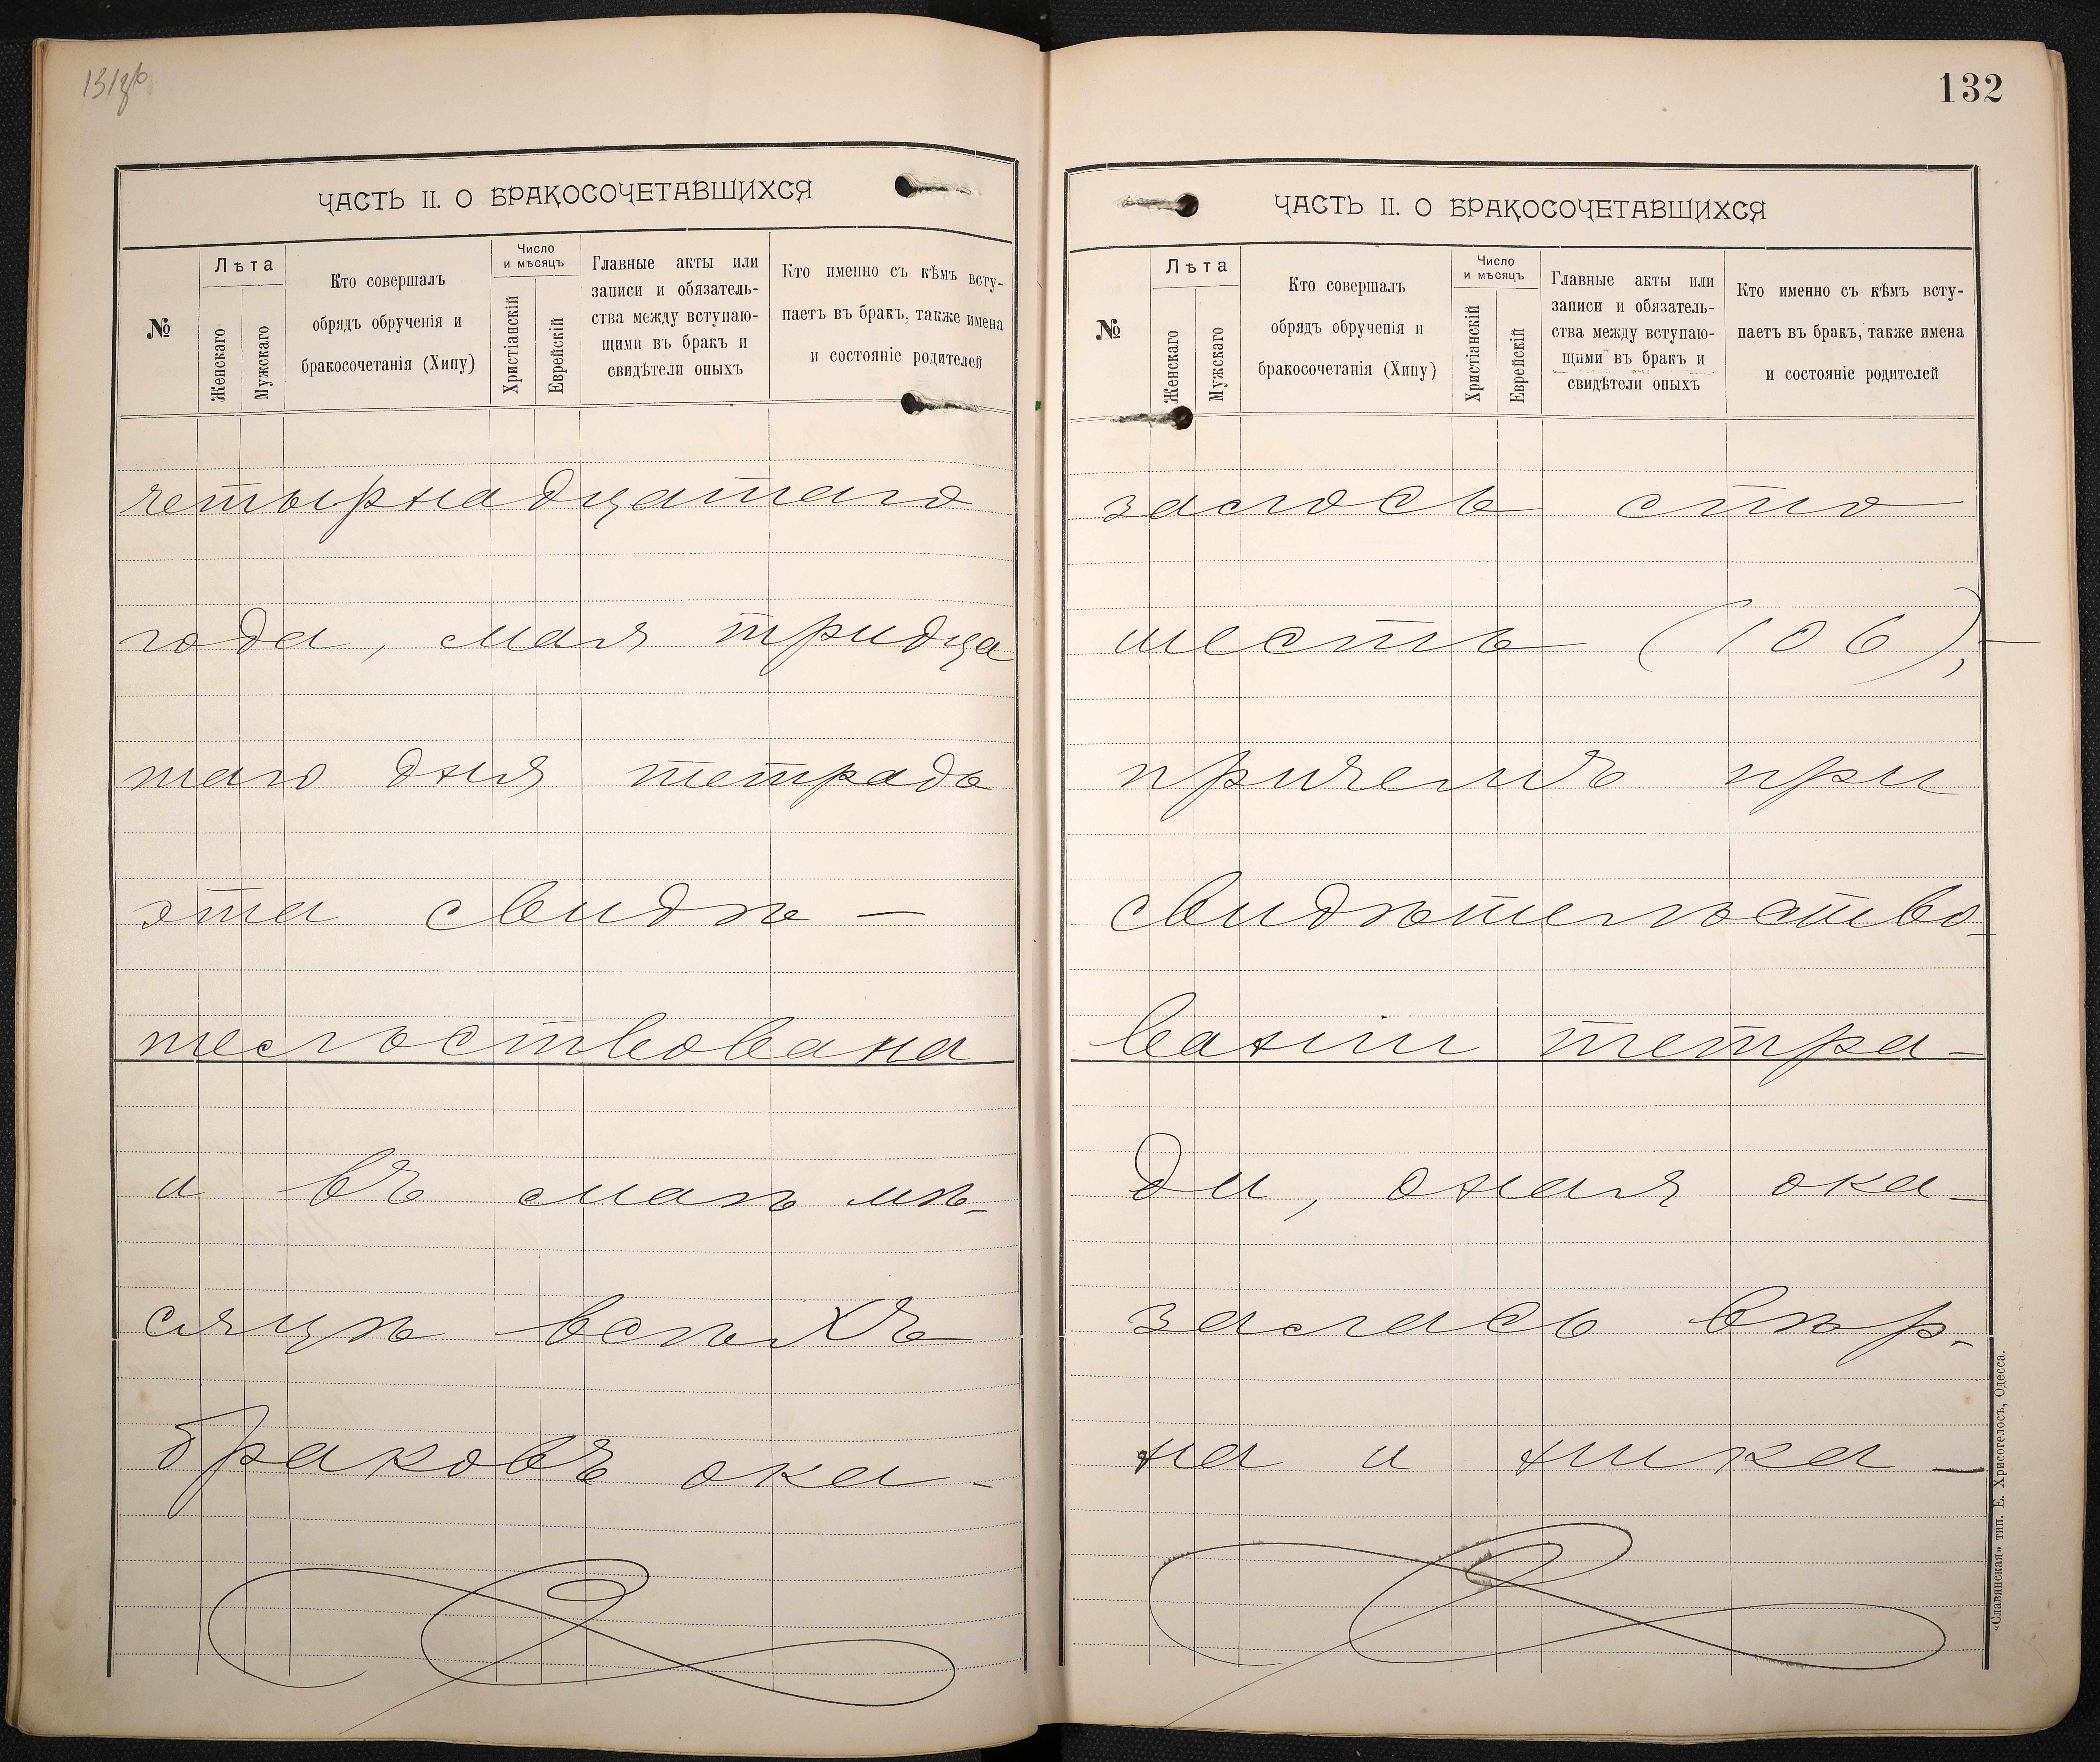 131 об
ЧАСТЬ II. О БРАКОСОЧЕТАВШИХСЯ
№
Лѣта
Женскаго
Мужскаго
Кто совершалъ
обрядъ обрученія и
бракосочетанія (Хипу)
Число
и мѣсяцъ
Христіанскій
Еврейскій
Главные акты или
записи и обязатель-
ства между вступаю-
щими въ бракъ и
свидѣтели оныхъ
Кто именно съ кѣмъ всту-
паетъ въ бракъ, также имена
и состояніе родителей
четырнадцатаго
года, мая тридца
таго дня тетрадь
эта свидѣ —
тельствована
и въ маѣ мѣ-
сяцѣ всѣхъ
браковъ ока-
132
ЧАСТЬ II. О БРАКОСОЧЕТАВШИХСЯ
№
Лѣта
Женскаго
Мужскаго
Кто совершалъ
обрядъ обрученія и
бракосочетанія (Хипу)
Число
и мѣсяцъ
Христіанскій
Еврейскій
Главные акты или
записи и обязатель-
ства между вступаю-
щими въ бракъ и
свидѣтели оныхъ
Кто именно съ кѣмъ всту-
паетъ въ бракъ, также имена
и состояніе родителей
залось сто
шесть (106),—
причемъ при
свидѣтельство-
ваніи тетра-
ди, оная ока-
залась вѣр-
на и ника —
«Славянская» тип. Е. Хрисогелосъ, Одесса.